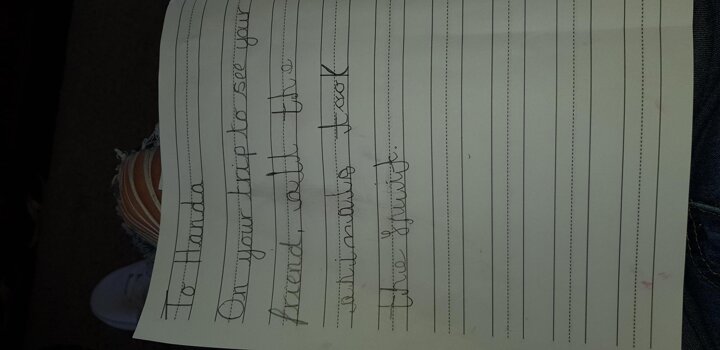 To Handa
On your trip to see your
friend, all the
animals took
the fruit.